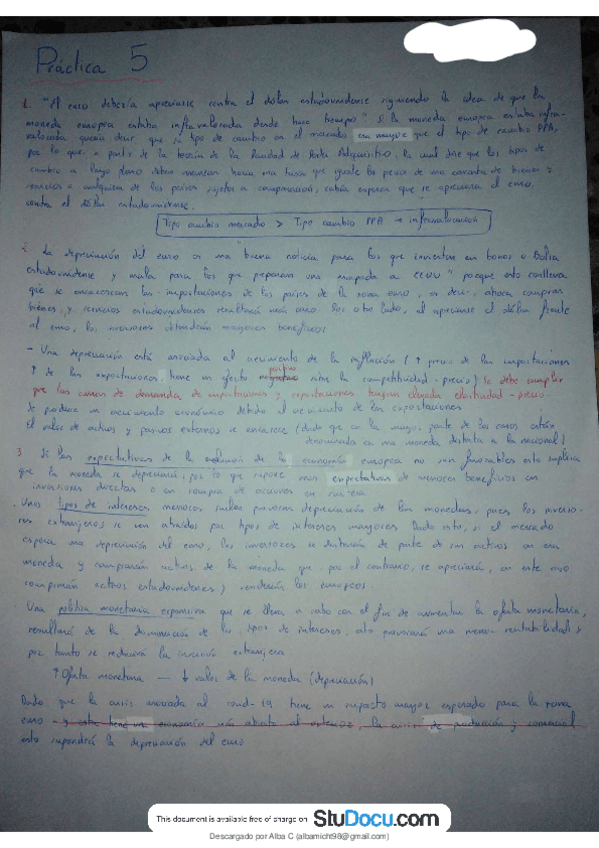 Práctica 5
1. "El euro debería apreciarse contra el dólar estadounidense siguiendo la idea de que la
moneda europea estaba infravalorada desde hace tiempo" Si la moneda europea estaba infra-
valorada quería decir que su tipo de cambio en el mercado era mayor que el tipo de cambio PPA,
por lo que, a partir de la teoría de la Paridad de Poder Adquisitivo, la cual dice que los tipos de
cambio a largo plazo deben moverse hacia una tasa que iguale los precios de una canasta de bienes y
servicios a cualquiera de los países sujetos a comparación, cabría esperar que se apreciara el euro,
contra el dólar estadounidense.
Tipo cambio mercado > Tipo cambio PPA → infravaloración
2. La depreciación del euro es una "buena noticia para los que invierten en bonos o Bolsa
estadounidense y mala para los que preparan una escapada a EEUU" porque esto conlleva
que se encarezcan las importaciones de los países de la zona euro, es decir, ahora comprar
bienes y servicios estadounidenses resultará más caro. Por otro lado, al apreciarse el dólar frente
al euro, los inversores obtendrán mayores beneficios
- Una depreciación está asociada al aumento de la inflación (↑ precio de las importaciones
↑ de las exportaciones, tiene un efecto negativo positivo sobre la competitividad-precio) Se debe cumplir
que las curvas de demanda de importaciones y exportaciones tengan elevada elasticidad-precio
Se produce un aumento económico debido al aumento de las exportaciones
El valor de activos y pasivos externos se encarece (dado que en la mayor parte de los casos están
denominada en una moneda distinta a la nacional)
3. Si las expectativas de la evolución de la economía europea no son favorables esto implica
que la moneda se depreciará, por lo que supone unas expectativas de menores beneficios en
inversiones directas o en compra de acciones en cartera
. Unos tipos de intereses menores suelen provocar depreciación de las monedas, pues los inverso-
res extranjeros se ven atraídos por tipos de intereses mayores. Dado esto, si el mercado
espera una depreciación del euro, los inversores se desharán de parte de sus activos en esa
moneda y comprarán activos de la moneda que, por el contrario, se apreciará, en este caso
comprarán activos estadounidenses y venderán los europeos.
Una política monetaria expansiva que se lleva a cabo con el fin de aumentar la oferta monetaria,
resultará de la disminución de los tipos de intereses, esto provocará una menor rentabilidad y
por tanto se reducirá la inversión extranjera
↑ Oferta monetaria — ↓ valor de la moneda (depreciación)
Dado que la crisis asociada al covid-19 tiene un impacto mayor esperado para la zona
euro y esta tiene una economía más abierta al exterior, la crisis de producción y comercial
esto supondría la depreciación del euro
This document is available free of charge on StuDocu.com
Descargado por Alba C (albamicht98@gmail.com)